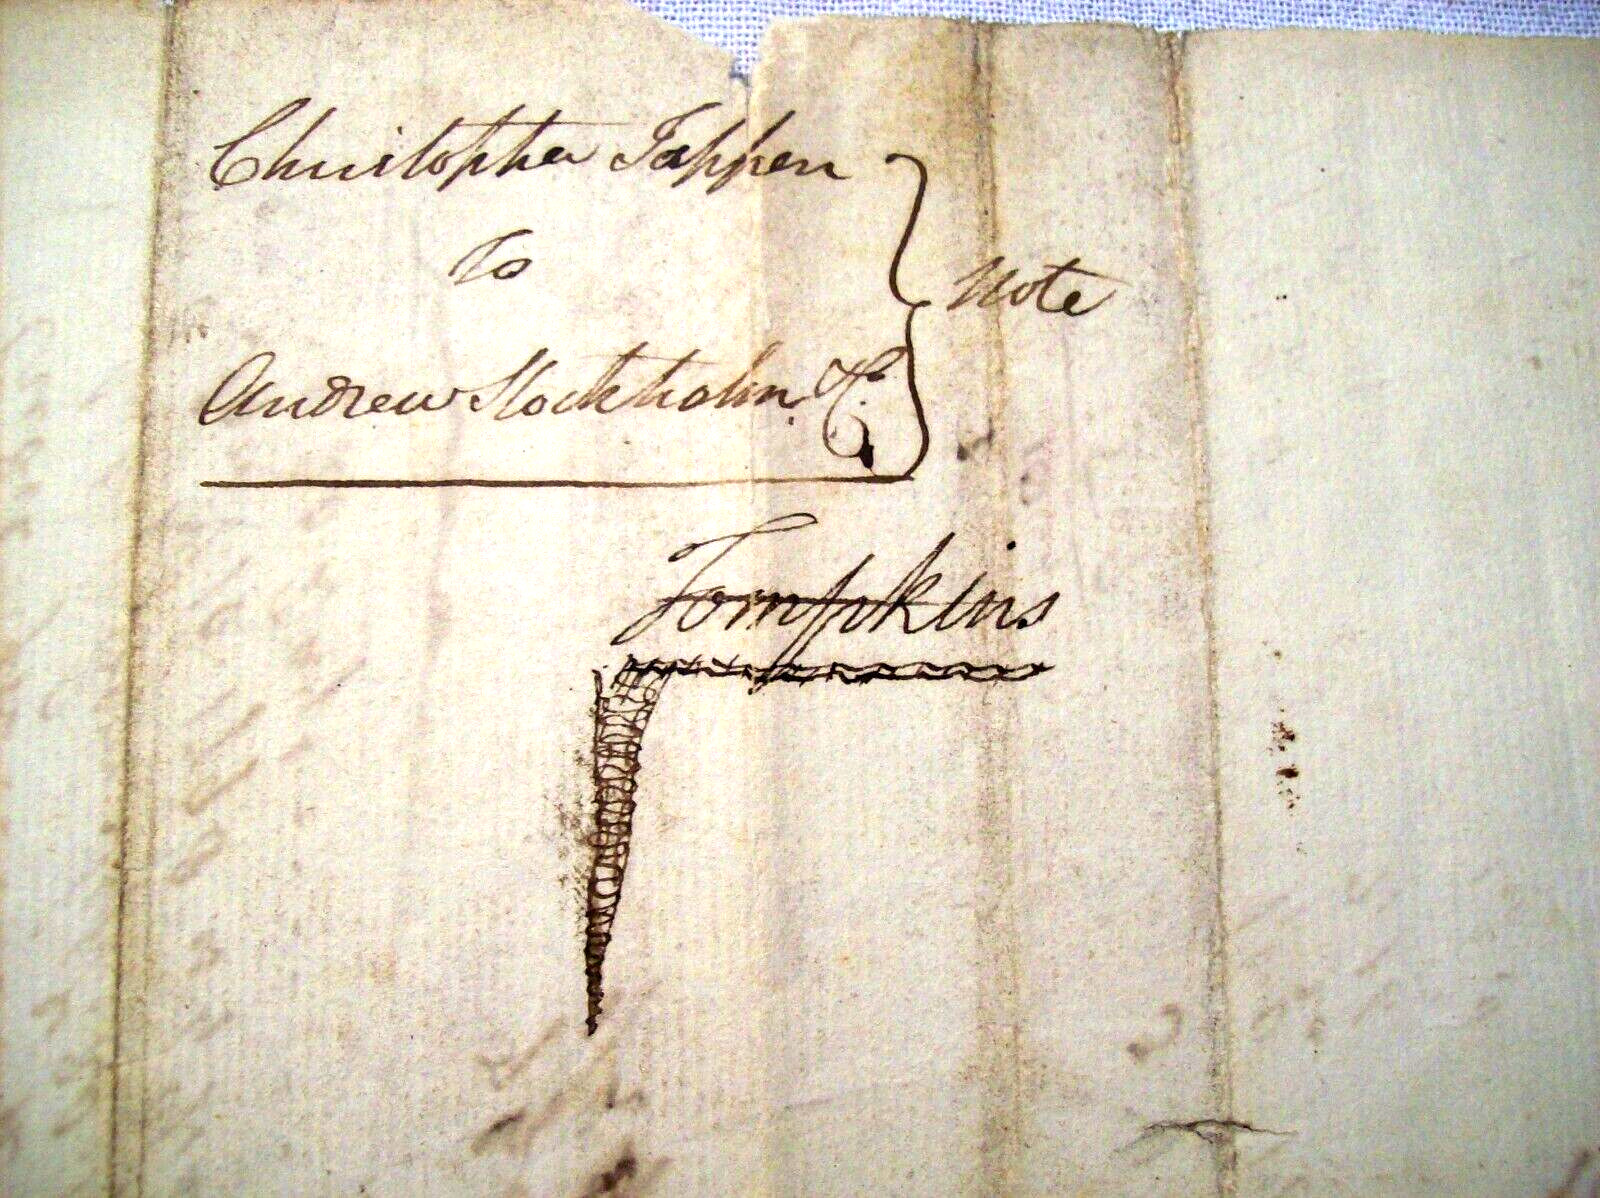 Christopher Tappen
To
Andrew Stockholm &c.
Note
Tompkins